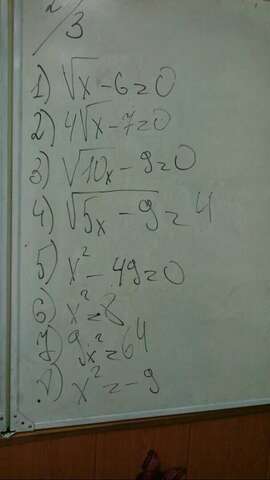 2/3
1) √x - 6 = 0
2) 4√x - 7 = 0
3) √10x - 9 = 0
4) √5x - 9 = 4
5) x² - 49 = 0
6) x² = 8
7) 9x² = 64
8) x² = -9